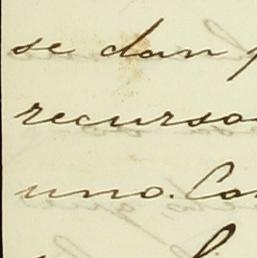 se dan p
recurso
uno. Co